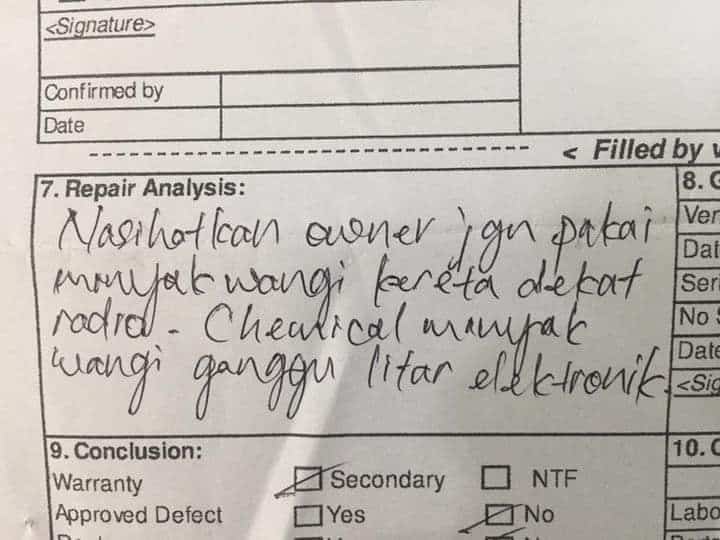 <Signature>
Confirmed by
Date
< Filled by
7. Repair Analysis:
Nasihatkan owner jgn pakai
minyak wangi kereta dekat
radio. Chemical minyak
wangi ganggu litar elektronik.
8.
Ver
Dat
Seri
No
Date
<Sig
9. Conclusion:
Warranty Secondary NTF
Approved Defect Yes No
10.
Labo